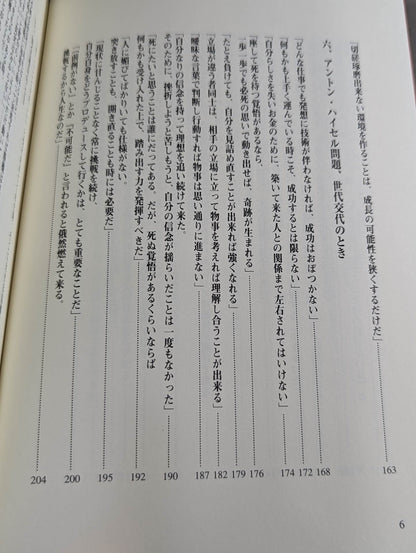 「切磋琢磨出来ない環境を作ることは、成長の可能性を狭くするだけだ」 163
六、アントン・ハイセル問題、世代交代のとき
「どんな仕事でも発想に技術が伴わなければ、成功はおぼつかない」 168
「何もかも上手く運んでいる時こそ、成功するとは限らない」 172
「自分らしさを失いお金のために、築いて来た人との関係まで左右されてはいけない」 174
「座して死を待つ覚悟があるなら、
一歩一歩でも必死の思いで動き出せば、奇跡が生まれる」 176
「たとえ負けても、自分を見詰め直すことが出来れば強くなれる」 179
「立場が違う者同士は、相手の立場に立って物事を考えれば理解し合うことが出来る」 182
「曖昧な言葉で判断し行動すれば物事は思い通りに進まない」 187
「自分なりの信念を持って理想を追い続けて来た。
そのために、挫折しようと苦しもうと、自分の信念が揺らいだことは一度もなかった」 190
「死にたいと思うことは誰にだってある。だが、死ぬ覚悟があるくらいならば
何もかも受け入れた上で、踏み出す力を発揮すべきだ」 192
「人に媚びてばかりいても仕様がない。
突き放すことも、開き直ることも時には必要だ」 195
「現状に甘んじることなく常に挑戦を続け、
自分自身をどうプロデュースして行くかは、とても重要なことだ」 200
「「前例がない」とか「不可能だ」と言われると俄然燃えて来る。
挑戦するから人生なのだ」 204
6